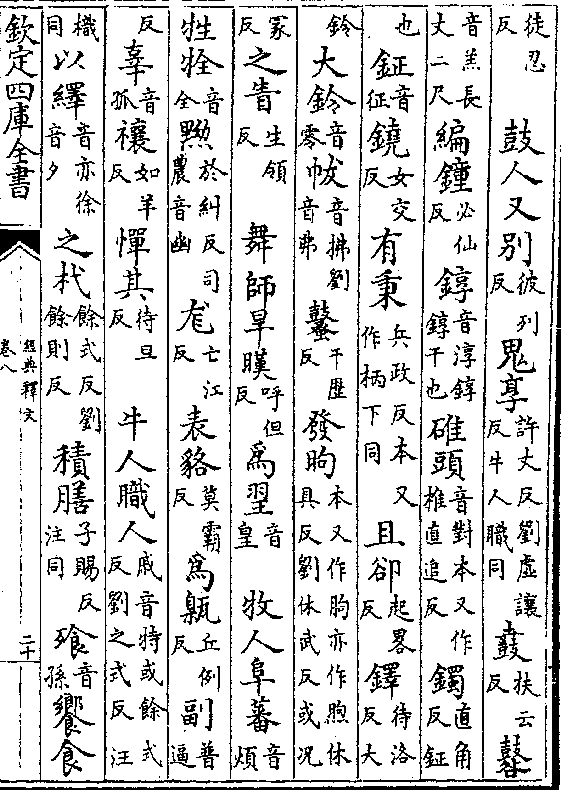 徒忍反　鼓人又别彼列反鬼享許丈反劉虛讓反牛人職同鼖扶云反鼛
音羔長丈二尺編鐘必仙反錞音淳錞錞于也碓頭音對本又作椎直追反鐲直角反鉦
也鉦音征鐃女交反有秉兵政反本又作柄下同且卻起畧反鐸待洛反大
鈴大鈴音零帗音拂劉音弗鼜千歷反發昫本又作朐亦作煦休具反劉休武反或况
冡反之眚生領反　舞師旱暵呼但反為翌音皇　牧人阜蕃音煩
牲牷音全黝於糾反司農音幽尨亡江反表貉莫霸反為甈丘例反副普逼
反辜音孤禳如羊反憚其待旦反　牛人職人戚音特或餘式反劉之式反汪
樴同以繹音亦徐音夕之杙餘式反劉餘則反積膳子賜反注同飱音孫饗食
欽定四庫全書　經典釋文卷八　二十